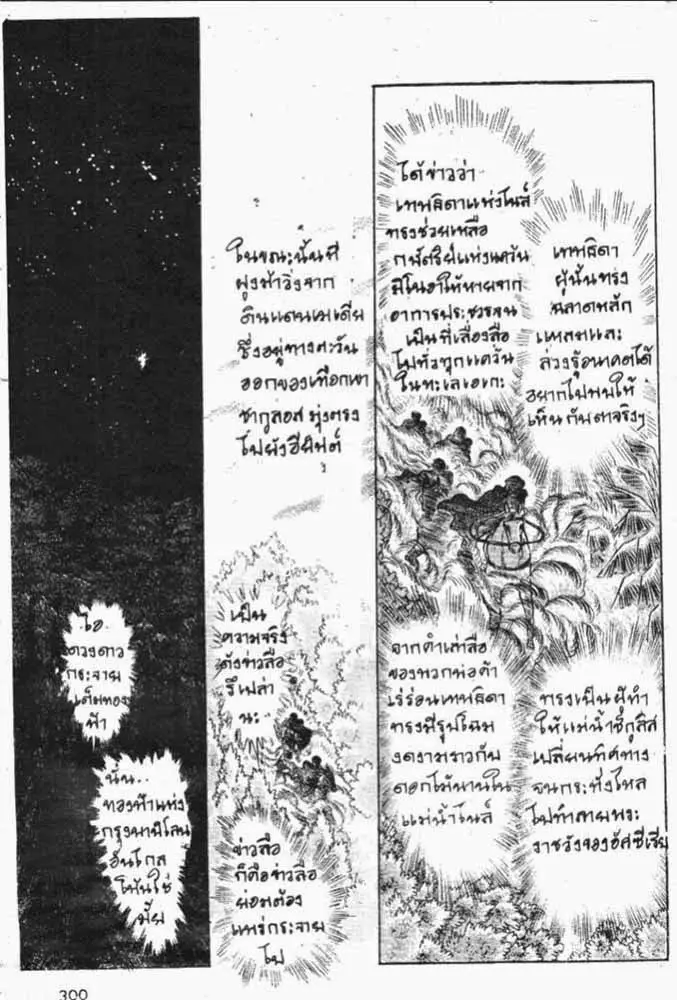 โอ
ดวงดาว
กระจาย
เต็มทอง
ฟ้า
นั่น..
ทองฟ้าแห่ง
กรุงบาบิโลน
อันไกล
โพ้นใช่
มั้ย
ในขณะนั้นมี
ฝูงม้าวิ่งจาก
ดินแดนเมเดีย
ซึ่งอยู่ทางตะวัน
ออกของเทือกเขา
ซากูลอส มุ่งตรง
ไปยังอียิปต์
เป็น
ความจริง
ดังข่าวลือ
รึเปล่า
นะ
ข่าวลือ
ก็คือข่าวลือ
ย่อมต้อง
แพร่กระจาย
ไป
ได้ข่าวว่า
เทพธิดาแห่งไนล์
ทรงช่วยเหลือ
กษัตริย์แห่งแคว้น
มิโนอาให้หายจาก
อาการประชวรจน
เป็นที่เลื่องลือ
ไปทั่วทุกแคว้น
ในทะเลเอเกะ
เทพธิดา
ผู้นั้นทรง
ฉลาดหลัก
แหลมและ
ล่วงรู้อนาคตได้
อยากไปพบให้
เห็นกับตาจริงๆ
จากคำเล่าลือ
ของพวกพ่อค้า
เร่ร่อนเทพธิดา
ทรงมีรูปโฉม
งดงามราวกับ
ดอกไม้บานใน
แม่น้ำไนล์
ทรงเป็นผู้ทำ
ให้แม่น้ำชีกูลิส
เปลี่ยนทิศทาง
จนกระทั่งไหล
ไปทำลายพระ
ราชวังของอัสซีเรีย
300